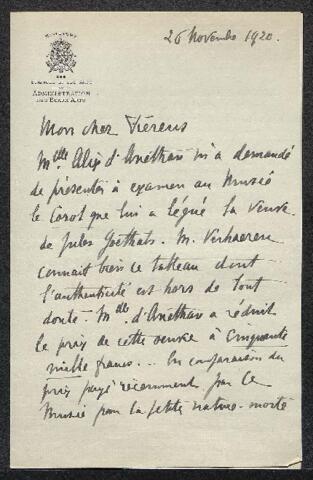 26 Novembre 1920.
ADMINISTRATION
DES BEAUX-ARTS
Mon cher Fierens
Mlle Alix d'Anethan m'a demandé
de présenter à examen au Musée
le Corot que lui a légué la veuve
de Jules Goethals. M. Verhaeren
connait bien ce tableau dont
l'authenticité est hors de tout
doute. Mlle d'Anethan a réduit
le prix de cette oeuvre à cinquante
mille francs... En comparaison du
prix payé récemment par le
Musée pour la petite nature-morte